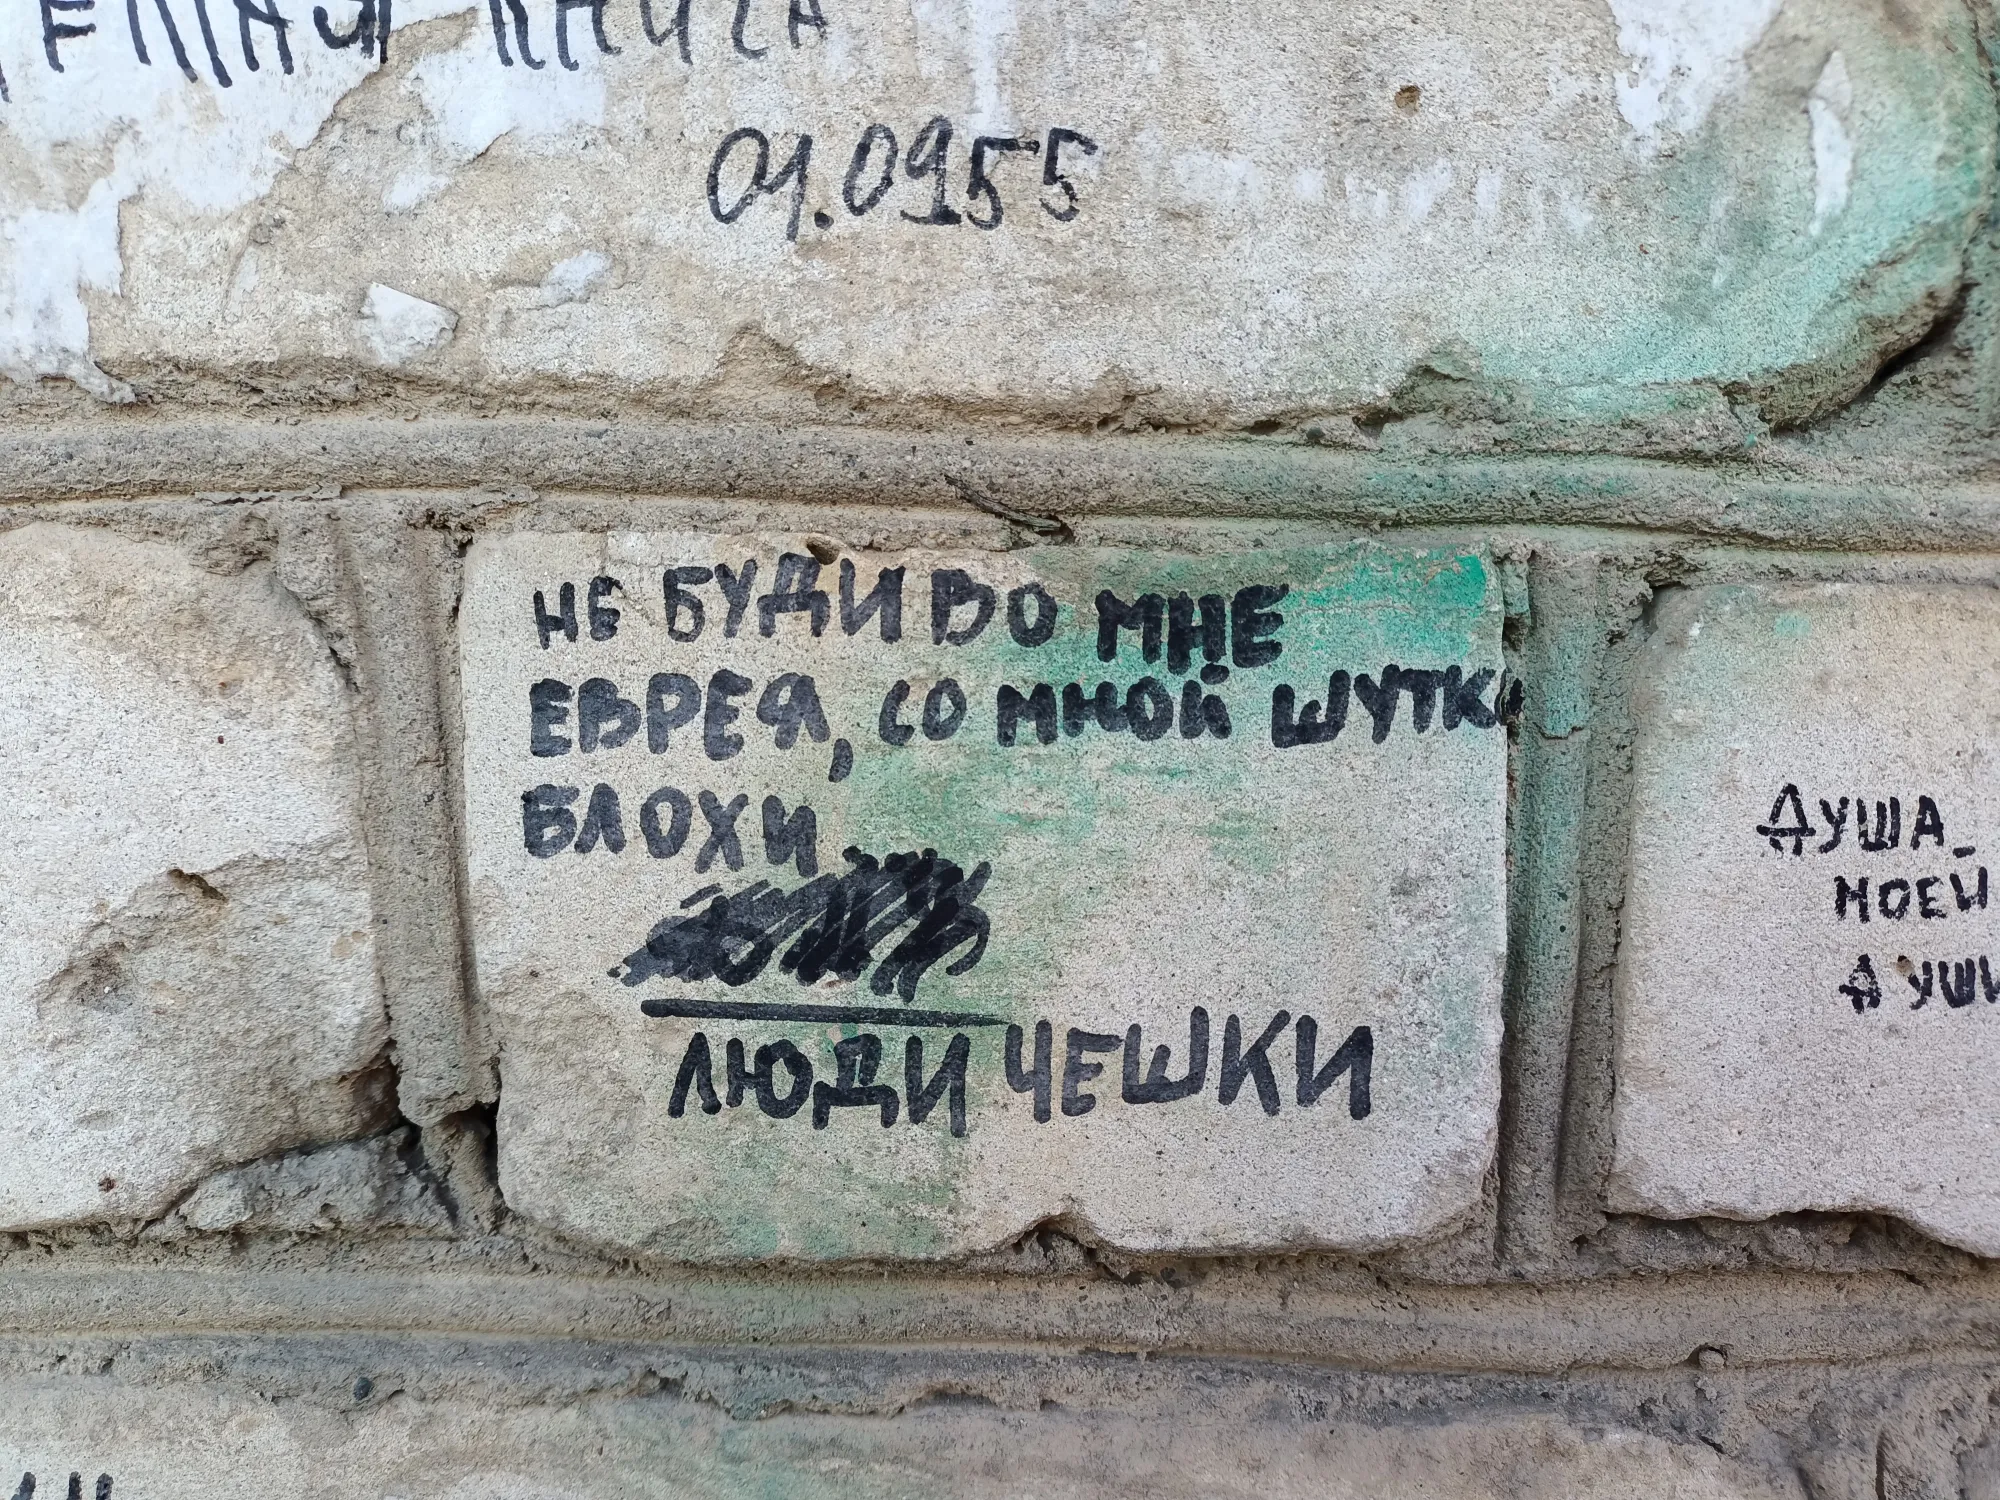 КНИГА
01.0955
НЕ БУДИ ВО МНЕ
ЕВРЕЯ, СО МНОЙ ШУТКИ
БЛОХИ
ЛЮДИ ЧЕШКИ
ДУША
МОЕЙ
ДУШИ